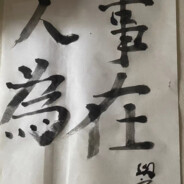 事在
人為